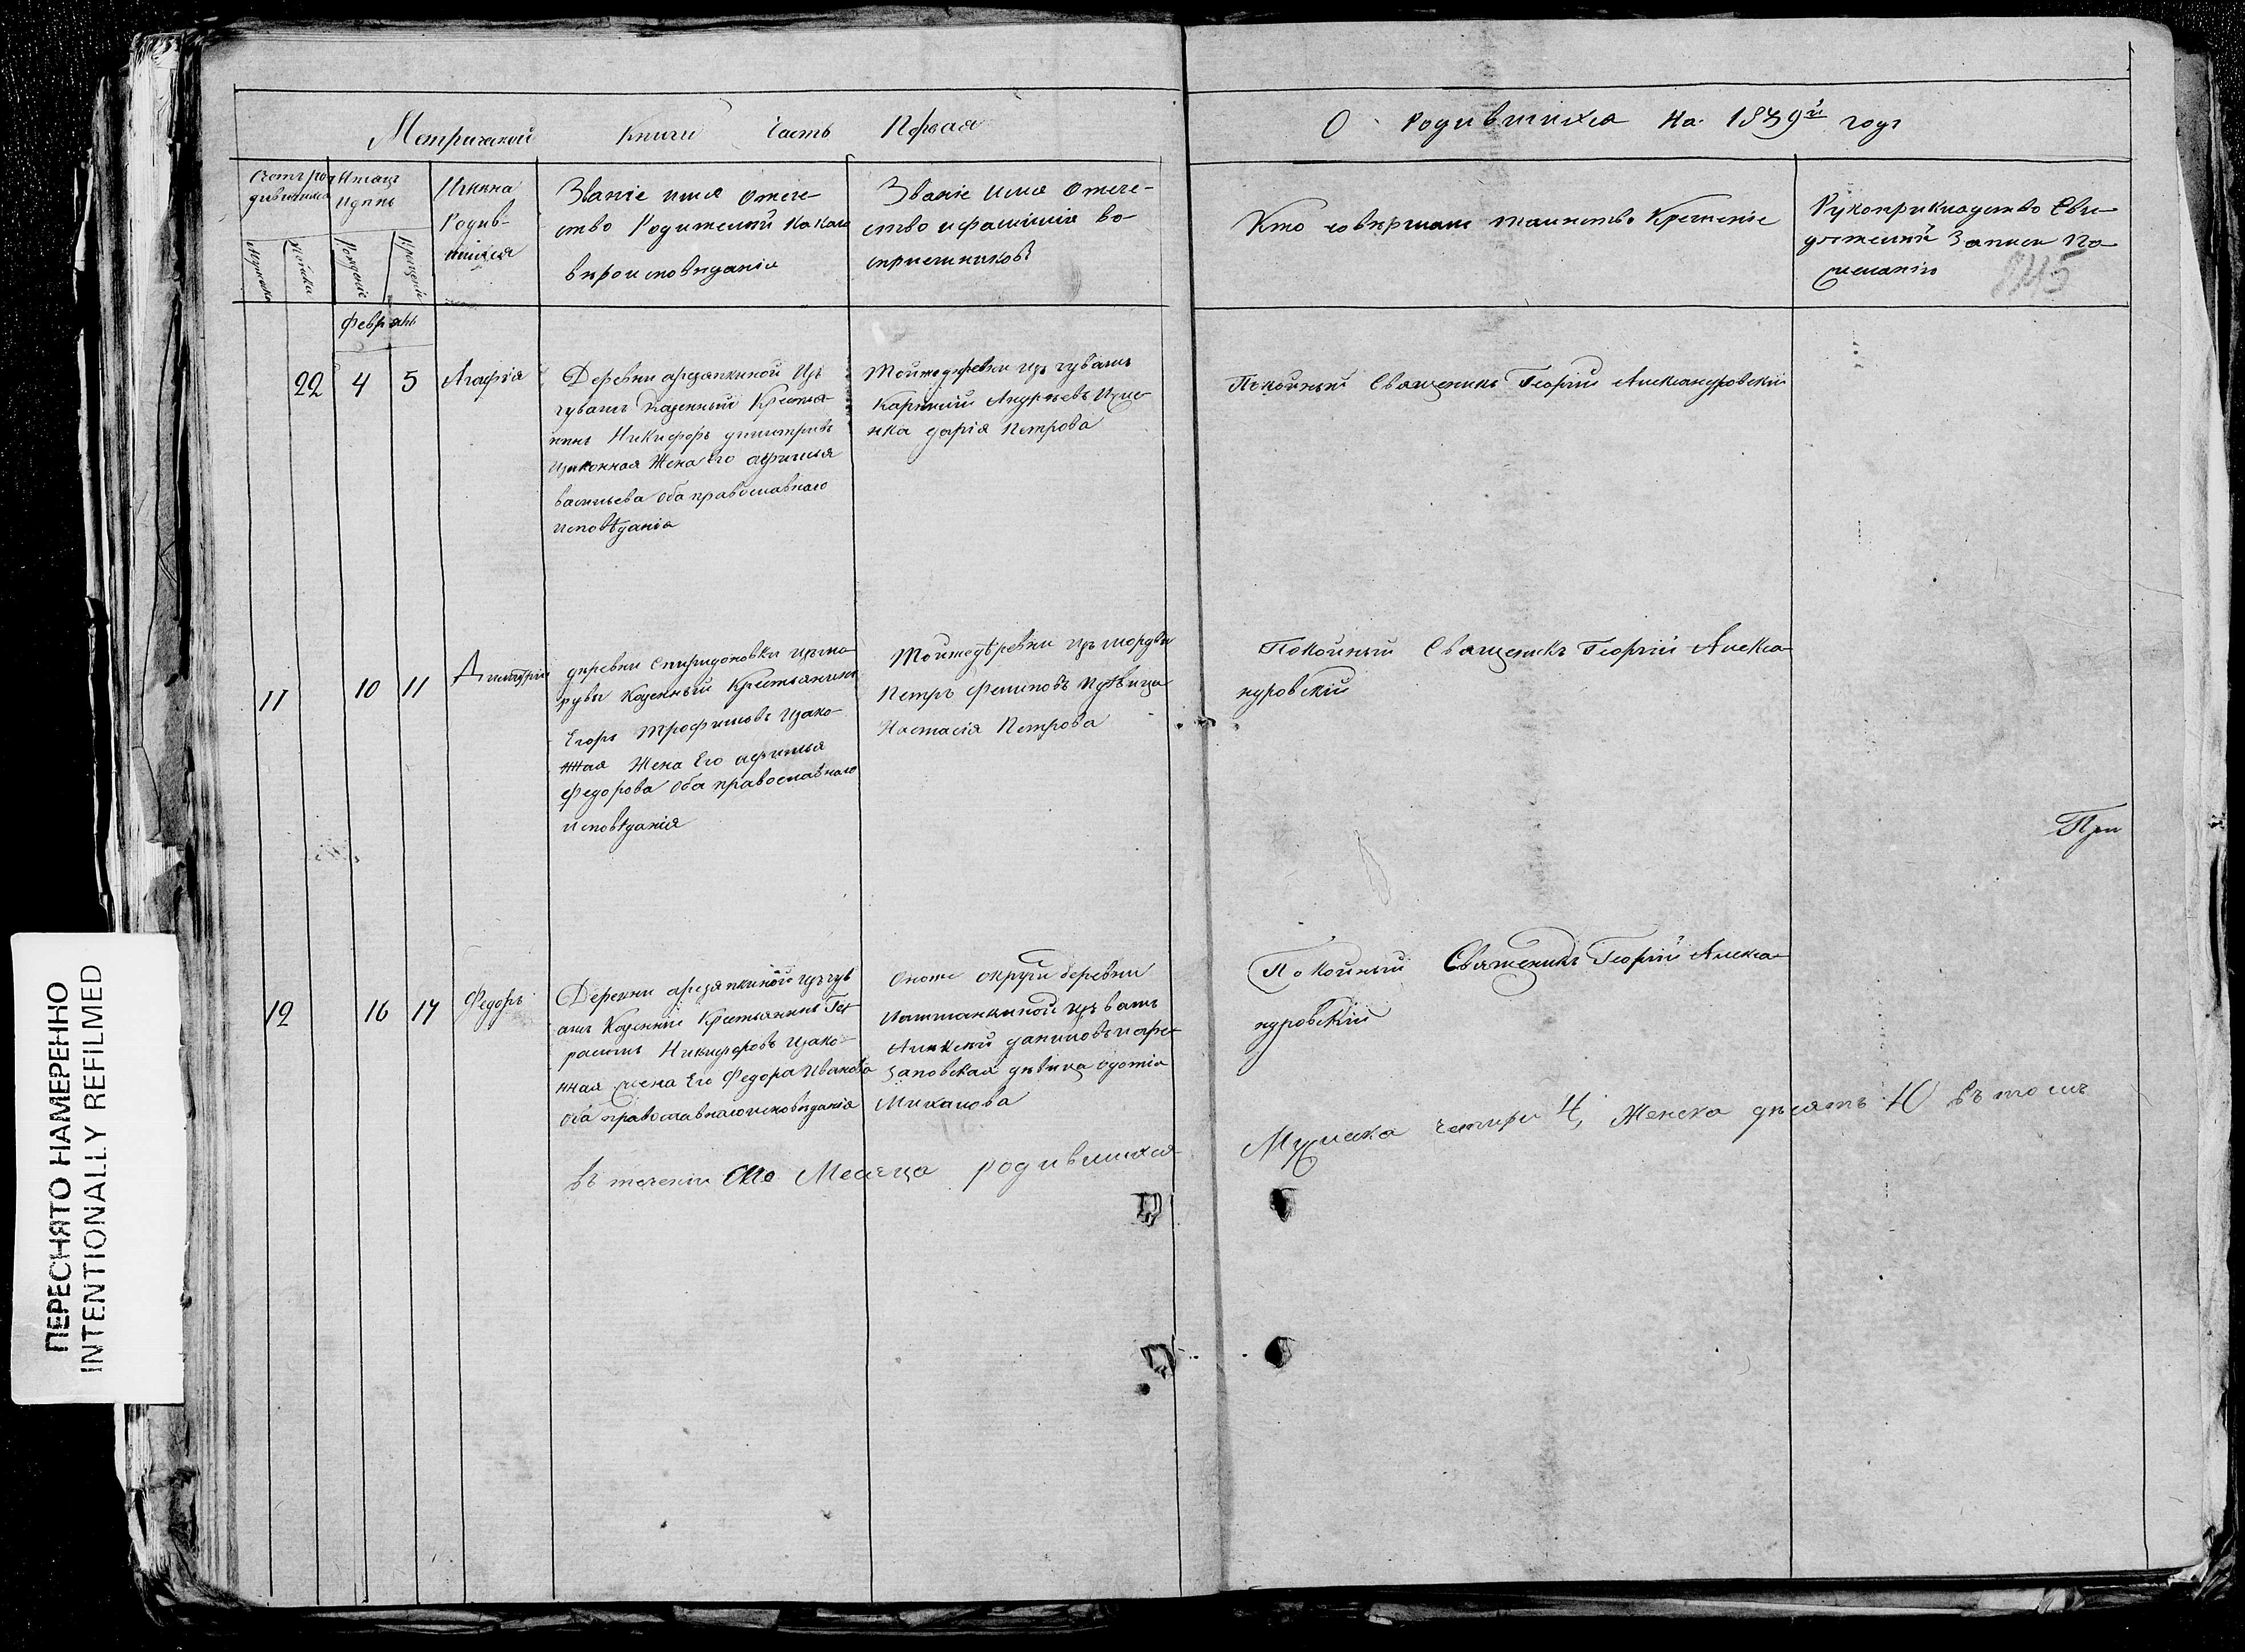 Метрической Книги Часть Первая
О Родившихся На 1839й годъ
Счетъ ро
дившихся
Мужеска
Женска
Месяцъ
и день
Рождение
Крещение
Имена
Родив-
шихся
Званіе имя отече-
ство Родителей какого
вероисповеданія
Званіе имя отече-
ство и фамилія во-
спріемниковъ
Кто совершалъ таинство Крещеніе
Рукоприкладство Сви-
детелей Записи По
желанію
245
Февраль
22 4 5 Агафія
Деревни арзяпкиной изъ
чувашъ Казенный Крестья-
нинъ Никифоръ димитріевъ
изаконная Жена Его афимья
васильева оба православного
исповѣданія
Тойже деревни изъ чувашъ
Андреевъ
дарія Петрова
Покойный Священникъ Георгій Александровскій
11 10 11 Димитрій
деревни Спиридоновки изъ мо
рдвы Казенный Крестьянинъ
Егоръ Трофимовъ изако-
нная Жена Его афимья
федорова Оба православного
исповѣданія
Тойже деревни изъ мордвы
Петръ Филиповъ идѣвица
Настасія Петрова
Покойный Священикъ Георгій Алекса-
ндровскій
При
12 16 17 Федоръ
Деревни арзяпкиной изъ чув
ашъ Казенній Крестьянинъ Гер
расимъ Никифоровъ изако-
нная жена Его Федора Иванова
оба православнаго исповеданія
Оноже округи деревни
Алексей даниловъ иарз-
зяповская дѣвица одотія
Михайлова
Покойный Священикъ Георгій Алекса-
ндровскій
Въ теченіи Сего Месяца родившихся
Мужска четыре 4, Женска десять 10 Въ томъ
ПЕРЕСНЯТО НАМЕРЕННО
INTENTIONALLY REFILMED